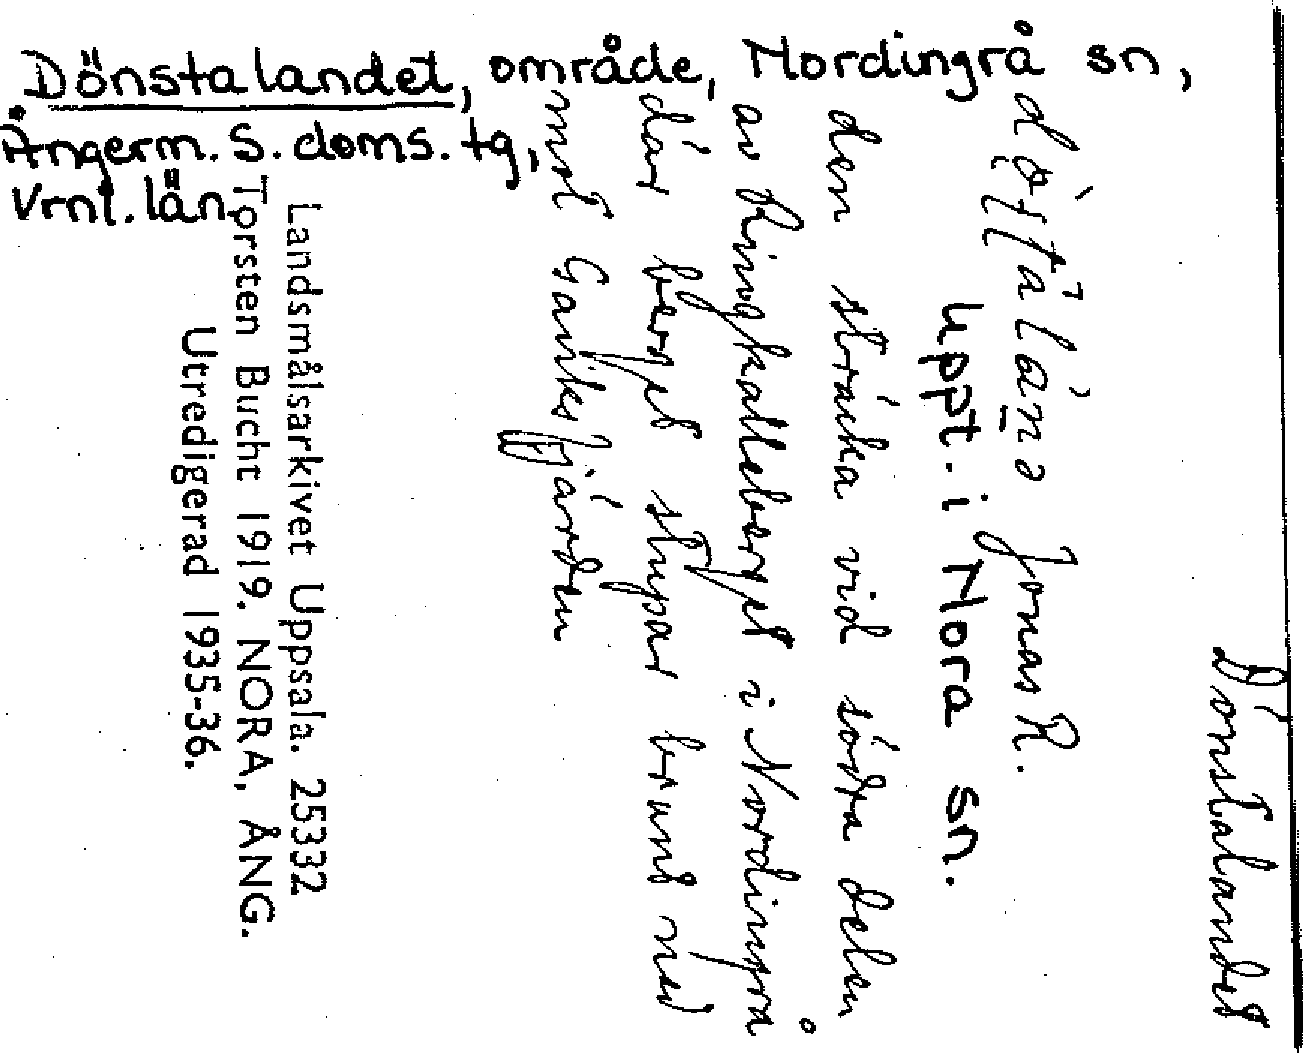 Dönstalandet, område, Nordingrå sn,
Ångerm. S. doms. tg,
Vrnl. län.
Dönstalandet
Jonas R.
Uppt. i Nora sn.
den sträcka vid södra delen
av Ringkalleberget i Nordingrå
där berget stupar brant ned
mot Gaviksfjärden
Landsmålsarkivet Uppsala. 25332
Torsten Bucht 1919. NORA, ÅNG.
Utredigerad 1935-36.